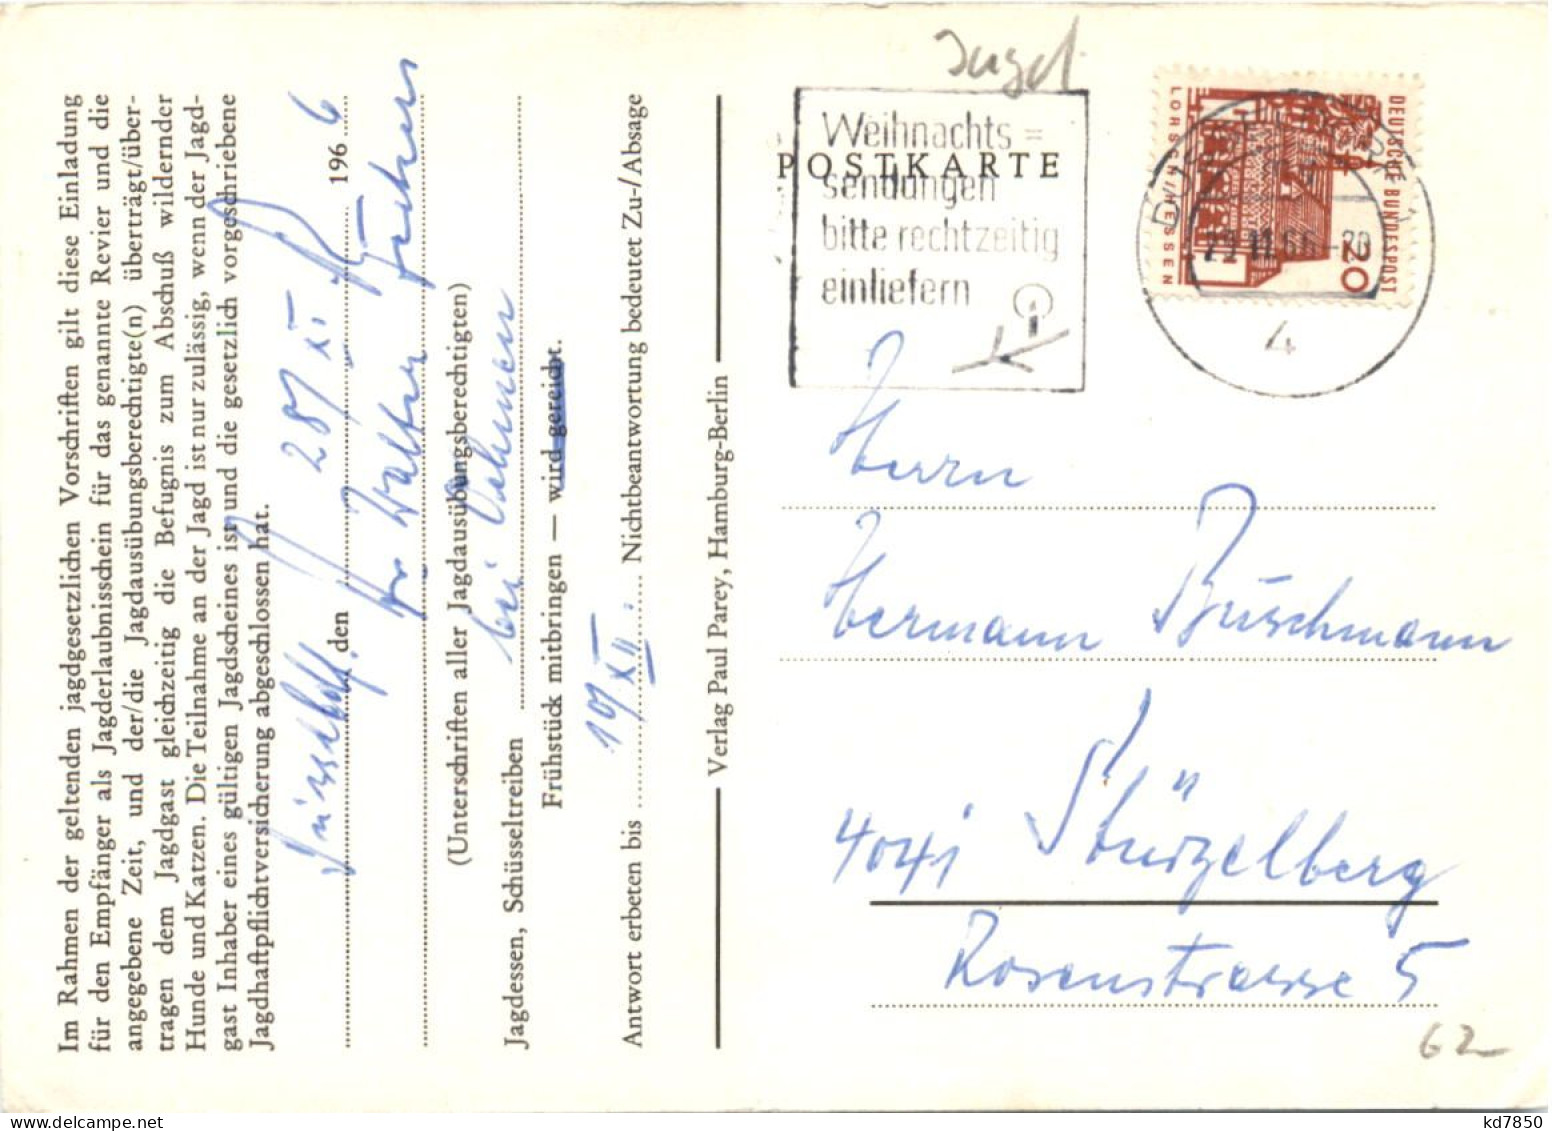 Im Rahmen der geltenden jagdgesetzlichen Vorschriften gilt diese Einladung
für den Empfänger als Jagderlaubnisschein für das genannte Revier und die
angegebene Zeit, und der/die Jagdausübungsberechtigte(n) überträgt/über-
tragen dem Jagdgast gleichzeitig die Befugnis zum Abschuß wildernder
Hunde und Katzen. Die Teilnahme an der Jagd ist nur zulässig, wenn der Jagd-
gast Inhaber eines gültigen Jagdscheines ist und die gesetzlich vorgeschriebene
Jagdhaftpflichtversicherung abgeschlossen hat.
den 28/XI. 1966
Walter
(Unterschriften aller Jagdausübungsberechtigten)
Jagdessen, Schüsseltreiben bei
Frühstück mitbringen — wird gereicht.
Antwort erbeten bis 10/XII. Nichtbeantwortung bedeutet Zu-/Absage
Verlag Paul Parey, Hamburg-Berlin
POSTKARTE
Weihnachts=
sendungen
bitte rechtzeitig
einliefern
DEUTSCHE BUNDESPOST
20
LORSCH/HESSEN
4
Herrn
Hermann Buschmann
4041 Stürzelberg
Rosenstrasse 5
62
kd7850